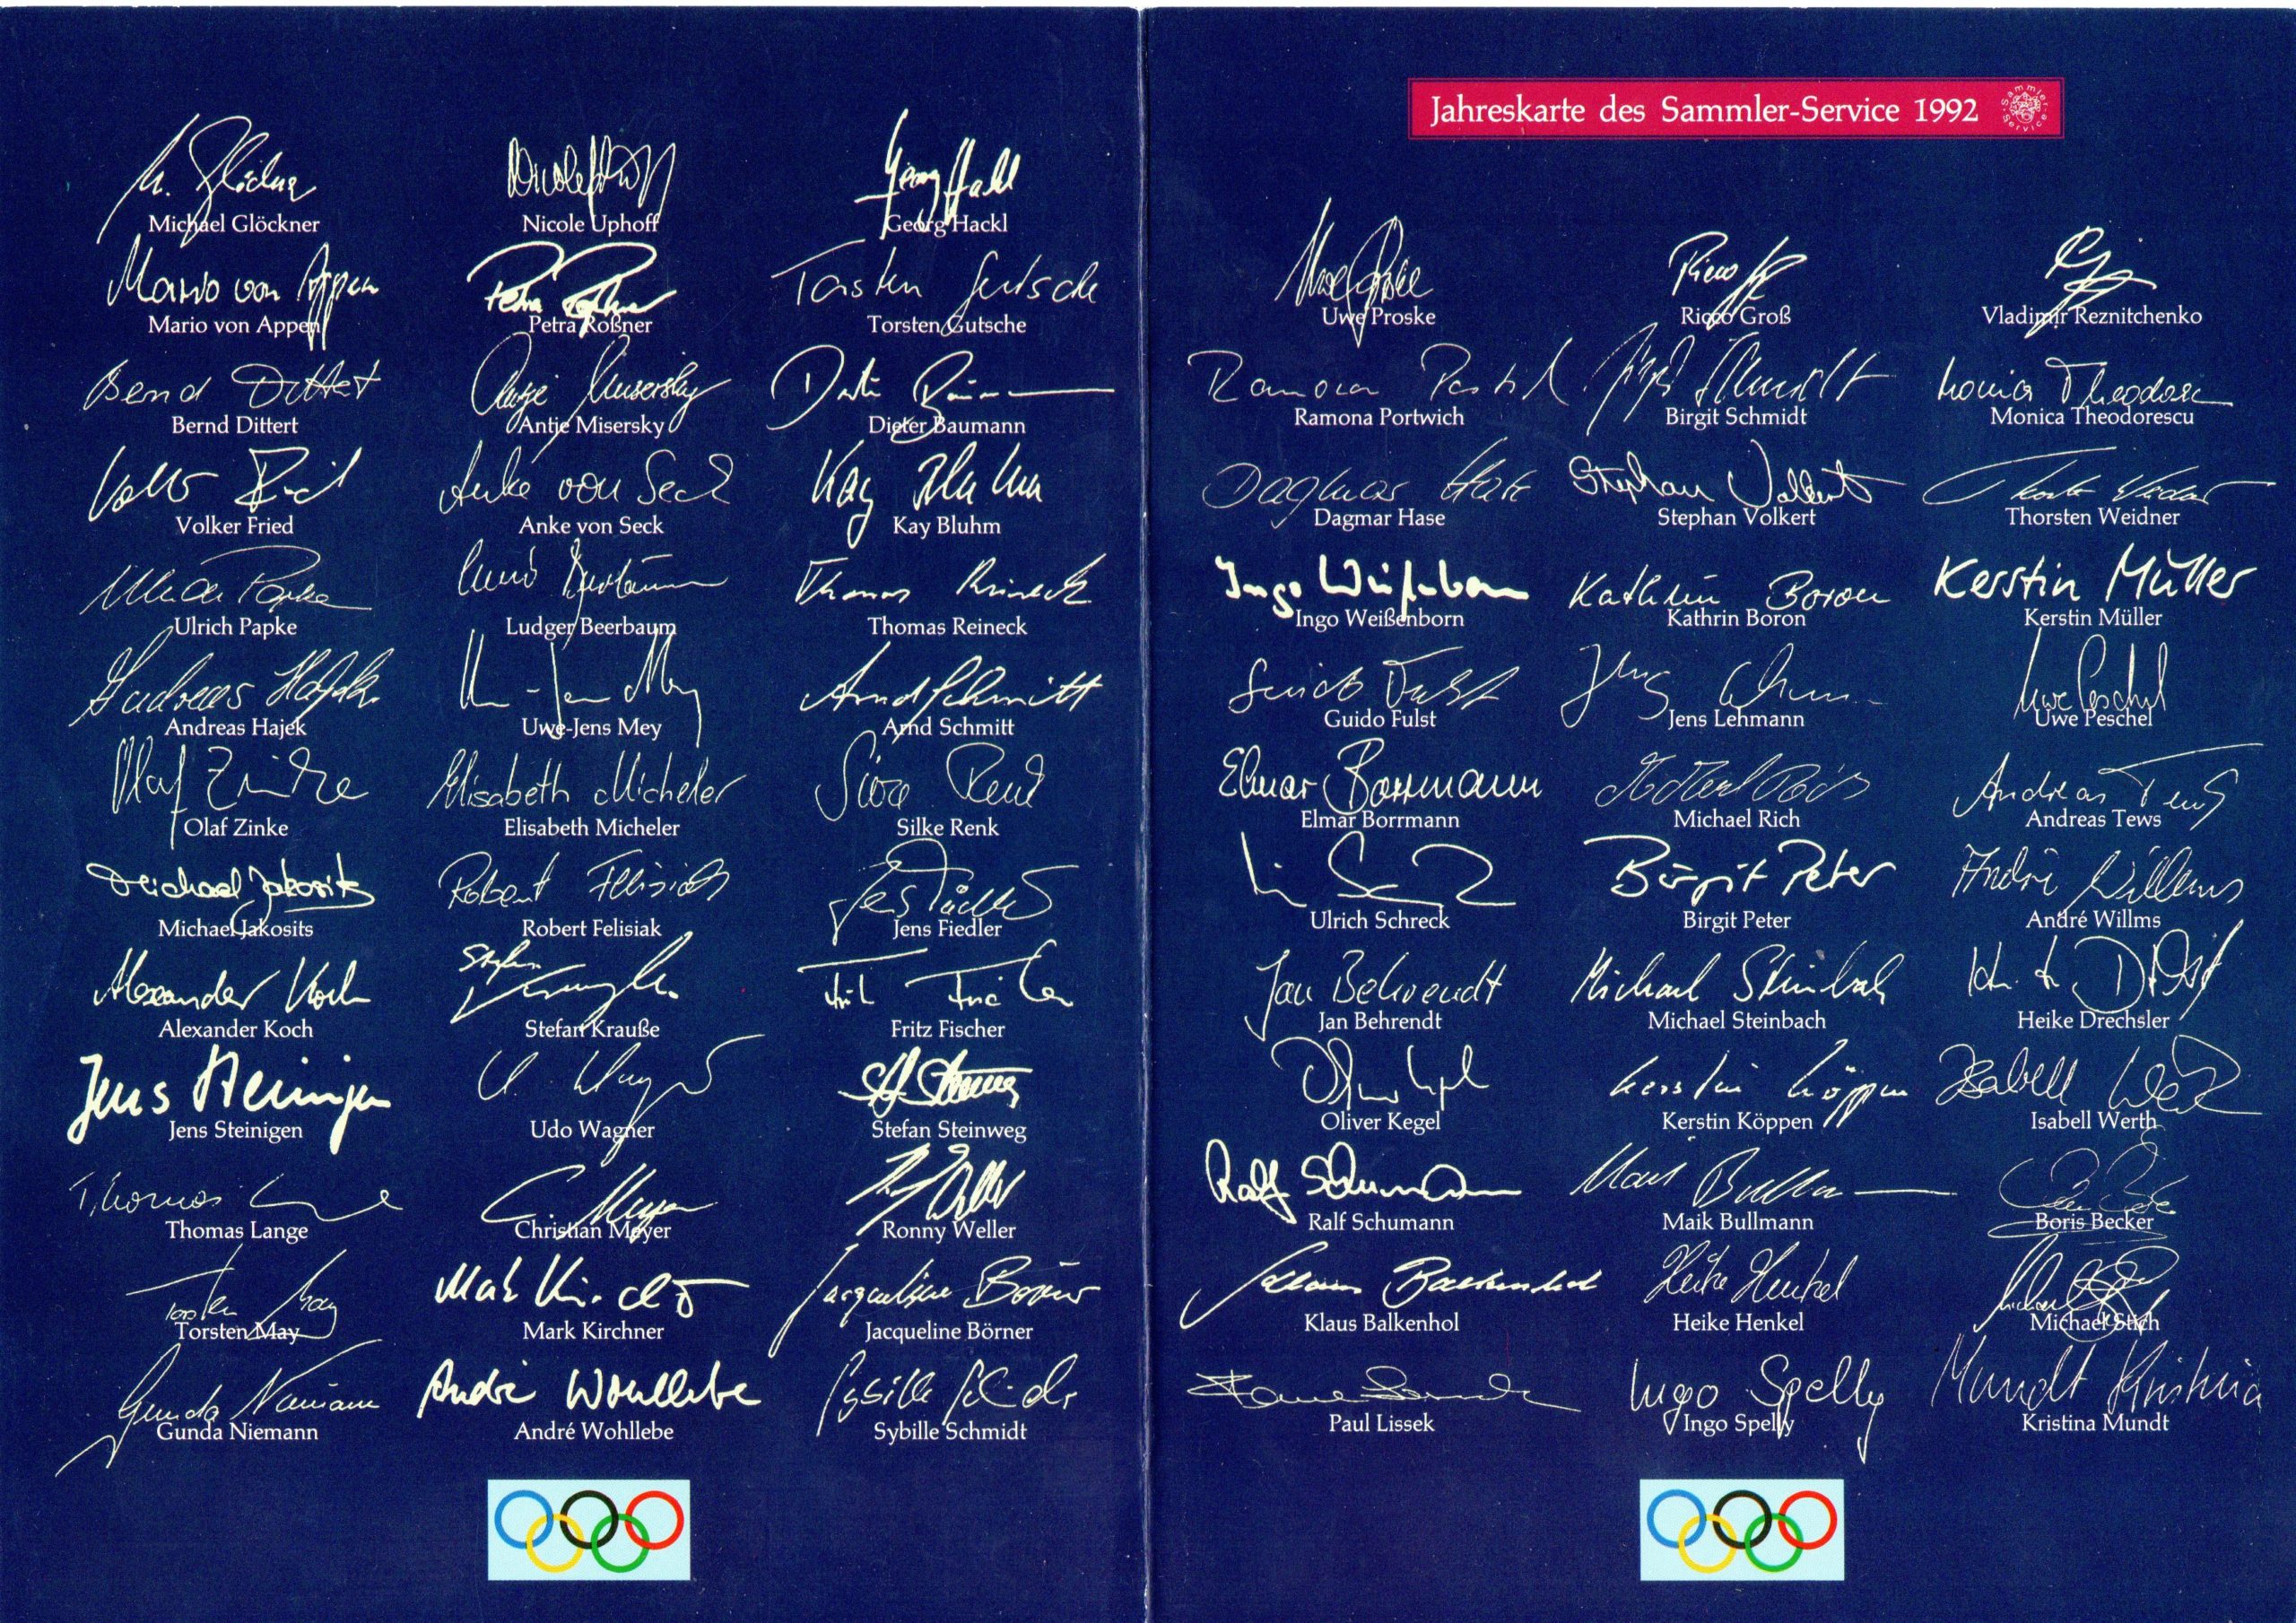 Michael Glöckner Nicole Uphoff Georg Hackl
Mario von Appen Petra Roßner Torsten Gutsche
Bernd Dittert Antje Misersky Dieter Baumann
Volker Fried Anke von Seck Kay Bluhm
Ulrich Papke Ludger Beerbaum Thomas Reineck
Andreas Hajek Uwe-Jens Mey Arnd Schmitt
Olaf Zinke Elisabeth Micheler Silke Renk
Michael Jakosits Robert Felisiak Jens Fiedler
Alexander Koch Stefan Krauße Fritz Fischer
Jens Steinigen Udo Wagner Stefan Steinweg
Thomas Lange Christian Meyer Ronny Weller
Torsten May Mark Kirchner Jacqueline Börner
Gunda Niemann André Wohllebe Sybille Schmidt
Jahreskarte des Sammler-Service 1992
Sammler-Service
Uwe Proske Ricco Groß Vladimir Reznitchenko
Ramona Portwich Birgit Schmidt Monica Theodorescu
Dagmar Hase Stephan Volkert Thorsten Weidner
Ingo Weißenborn Kathrin Boron Kerstin Müller
Guido Fulst Jens Lehmann Uwe Peschel
Elmar Borrmann Michael Rich Andreas Tews
Ulrich Schreck Birgit Peter André Willms
Jan Behrendt Michael Steinbach Heike Drechsler
Oliver Kegel Kerstin Köppen Isabell Werth
Ralf Schumann Maik Bullmann Boris Becker
Klaus Balkenhol Heike Henkel Michael Stich
Paul Lissek Ingo Spelly Kristina Mundt